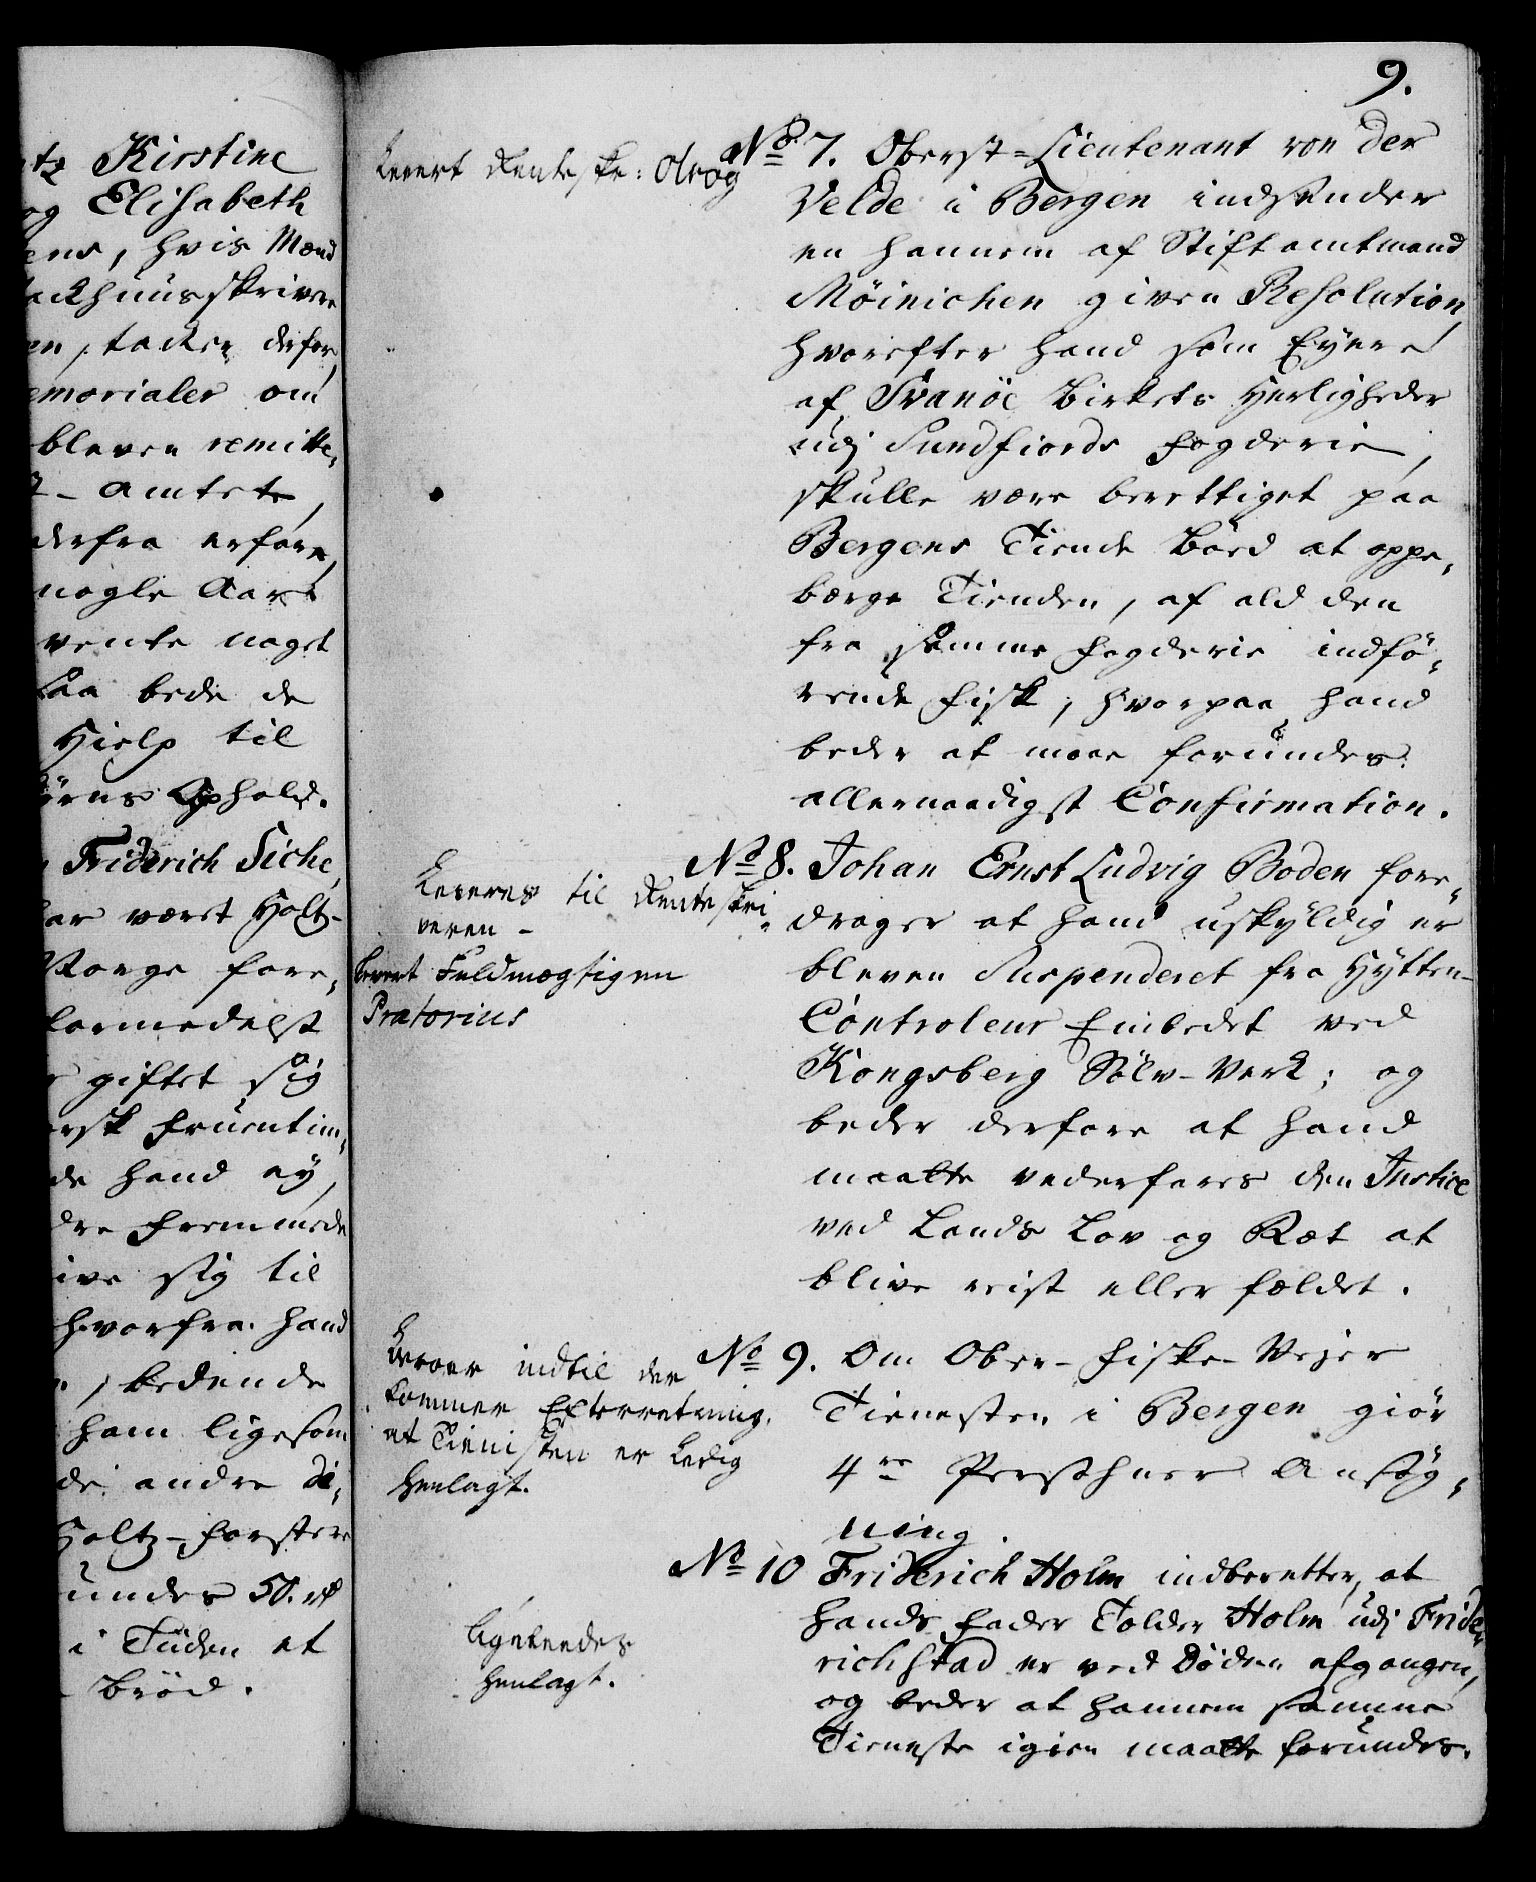 9.
tz Kirstine
og Elisabeth
ens, hvis Mænd
ackhuusskriver
en, tacker derfor,
emorialer om
bleven remitte,
Amtet,
derfra erfare,
nogle Aar
vente noget
saa bede de
Hielp til
örns Ophold.
Friderich Siche,
har været Holtz-
Norge fore,
formedelst
giftet sig
orsk Fruentim,
de hand ey,
dre fremmede
ive sig til
hvorfra hand
, bedende
ham ligesom
de andre di,
Holtz-Forstere
undes 50. rd
i Tiiden at
Bröd.
Leveret Renteskr: Olrog
No 7. Oberst-Lieutenant von der
Velde i Bergen indsender
en hannem af Stiftamtmand
Möinichen given Resolution,
hvorefter hand som Eyere
af Svanöe Birkets Herligheder
udj Sundfiords Fogderie,
skulle være berettiget paa
Bergens Tiende Boed at oppe,
børge Tienden, af ald den
fra samme Fogderie indfö,
rende Fisk, hvorpaa hand
beder at maae forundes
allernaadigst Confirmation.
Leveres til Renteskri,
veren -
Levert Fuldmægtigen
Prætorius
No 8. Johan Ernst Ludvig Boden fore,
drager at hand uskyldig er
bleven Suspenderet fra Hytten-
Controleur Embedet ved
Kongsberg Sölv-Verk; og
beder derfore at hand
maatte vederfares den Justice
ved Lands Lov og Ræt at
blive reist eller fældet.
beroer indtil der
kommer Efterretning,
at Tienisten er Ledig
Henlagt.
No 9. Om Ober-Fiske-Vejer
Tienesten i Bergen giör
4re Persohner Ansög,
ning.
Ligeleedes
Henlagt.
No 10 Friderich Holm indberetter, at
hands Fader Tolder Holm udj Fride,
richstad er ved Döden afgangen,
og beder at hannem samme
Tieneste igien maatte forundes.